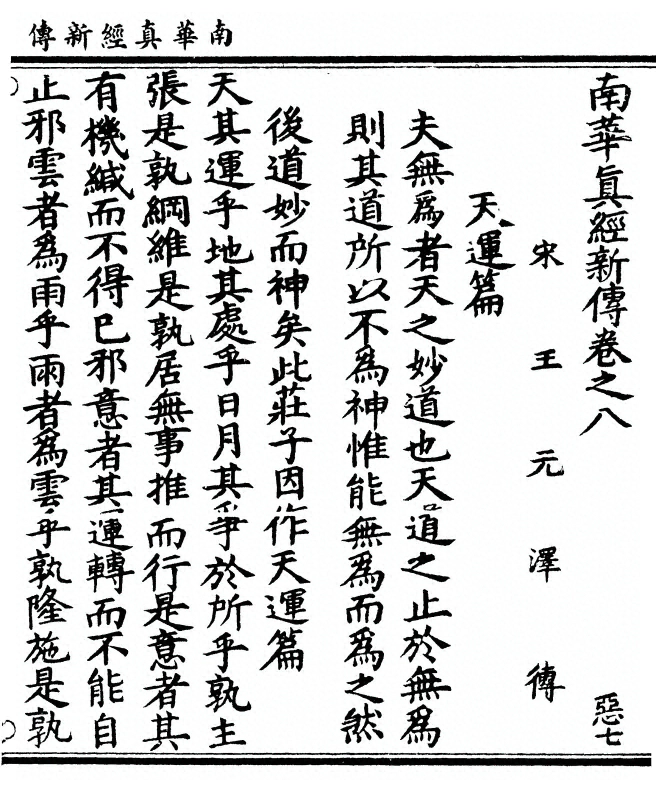 南華真經新傳
南華眞經新傳卷之八 惡七
宋王元澤傳
天運篇
夫無爲者天之妙道也天道之止於無爲
則其道所以不爲神惟能無爲而爲之然
後道妙而神矣此莊子因作天運篇
天其運乎地其處乎日月其爭於所乎孰主
張是孰綱維是孰居無事推而行是意者其
有機緘而不得已邪意者其運轉而不能自
止邪雲者爲雨乎雨者爲雲乎孰隆施是孰